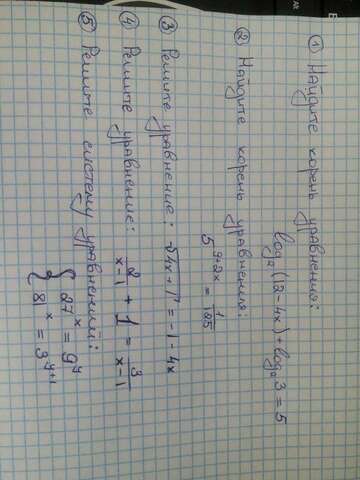 ① Найдите корень уравнения:
log₂(12-4x)+log₂3=5
② Найдите корень уравнения:
5^(9+2x) = 1/125
③ Решите уравнение: √(4x+1) = -1-4x
④ Решите уравнение: 2/(x-1) + 1 = 3/(x-1)
⑤ Решите систему уравнений:
{ 27^x = 9^y
81^x = 3^(y+1)